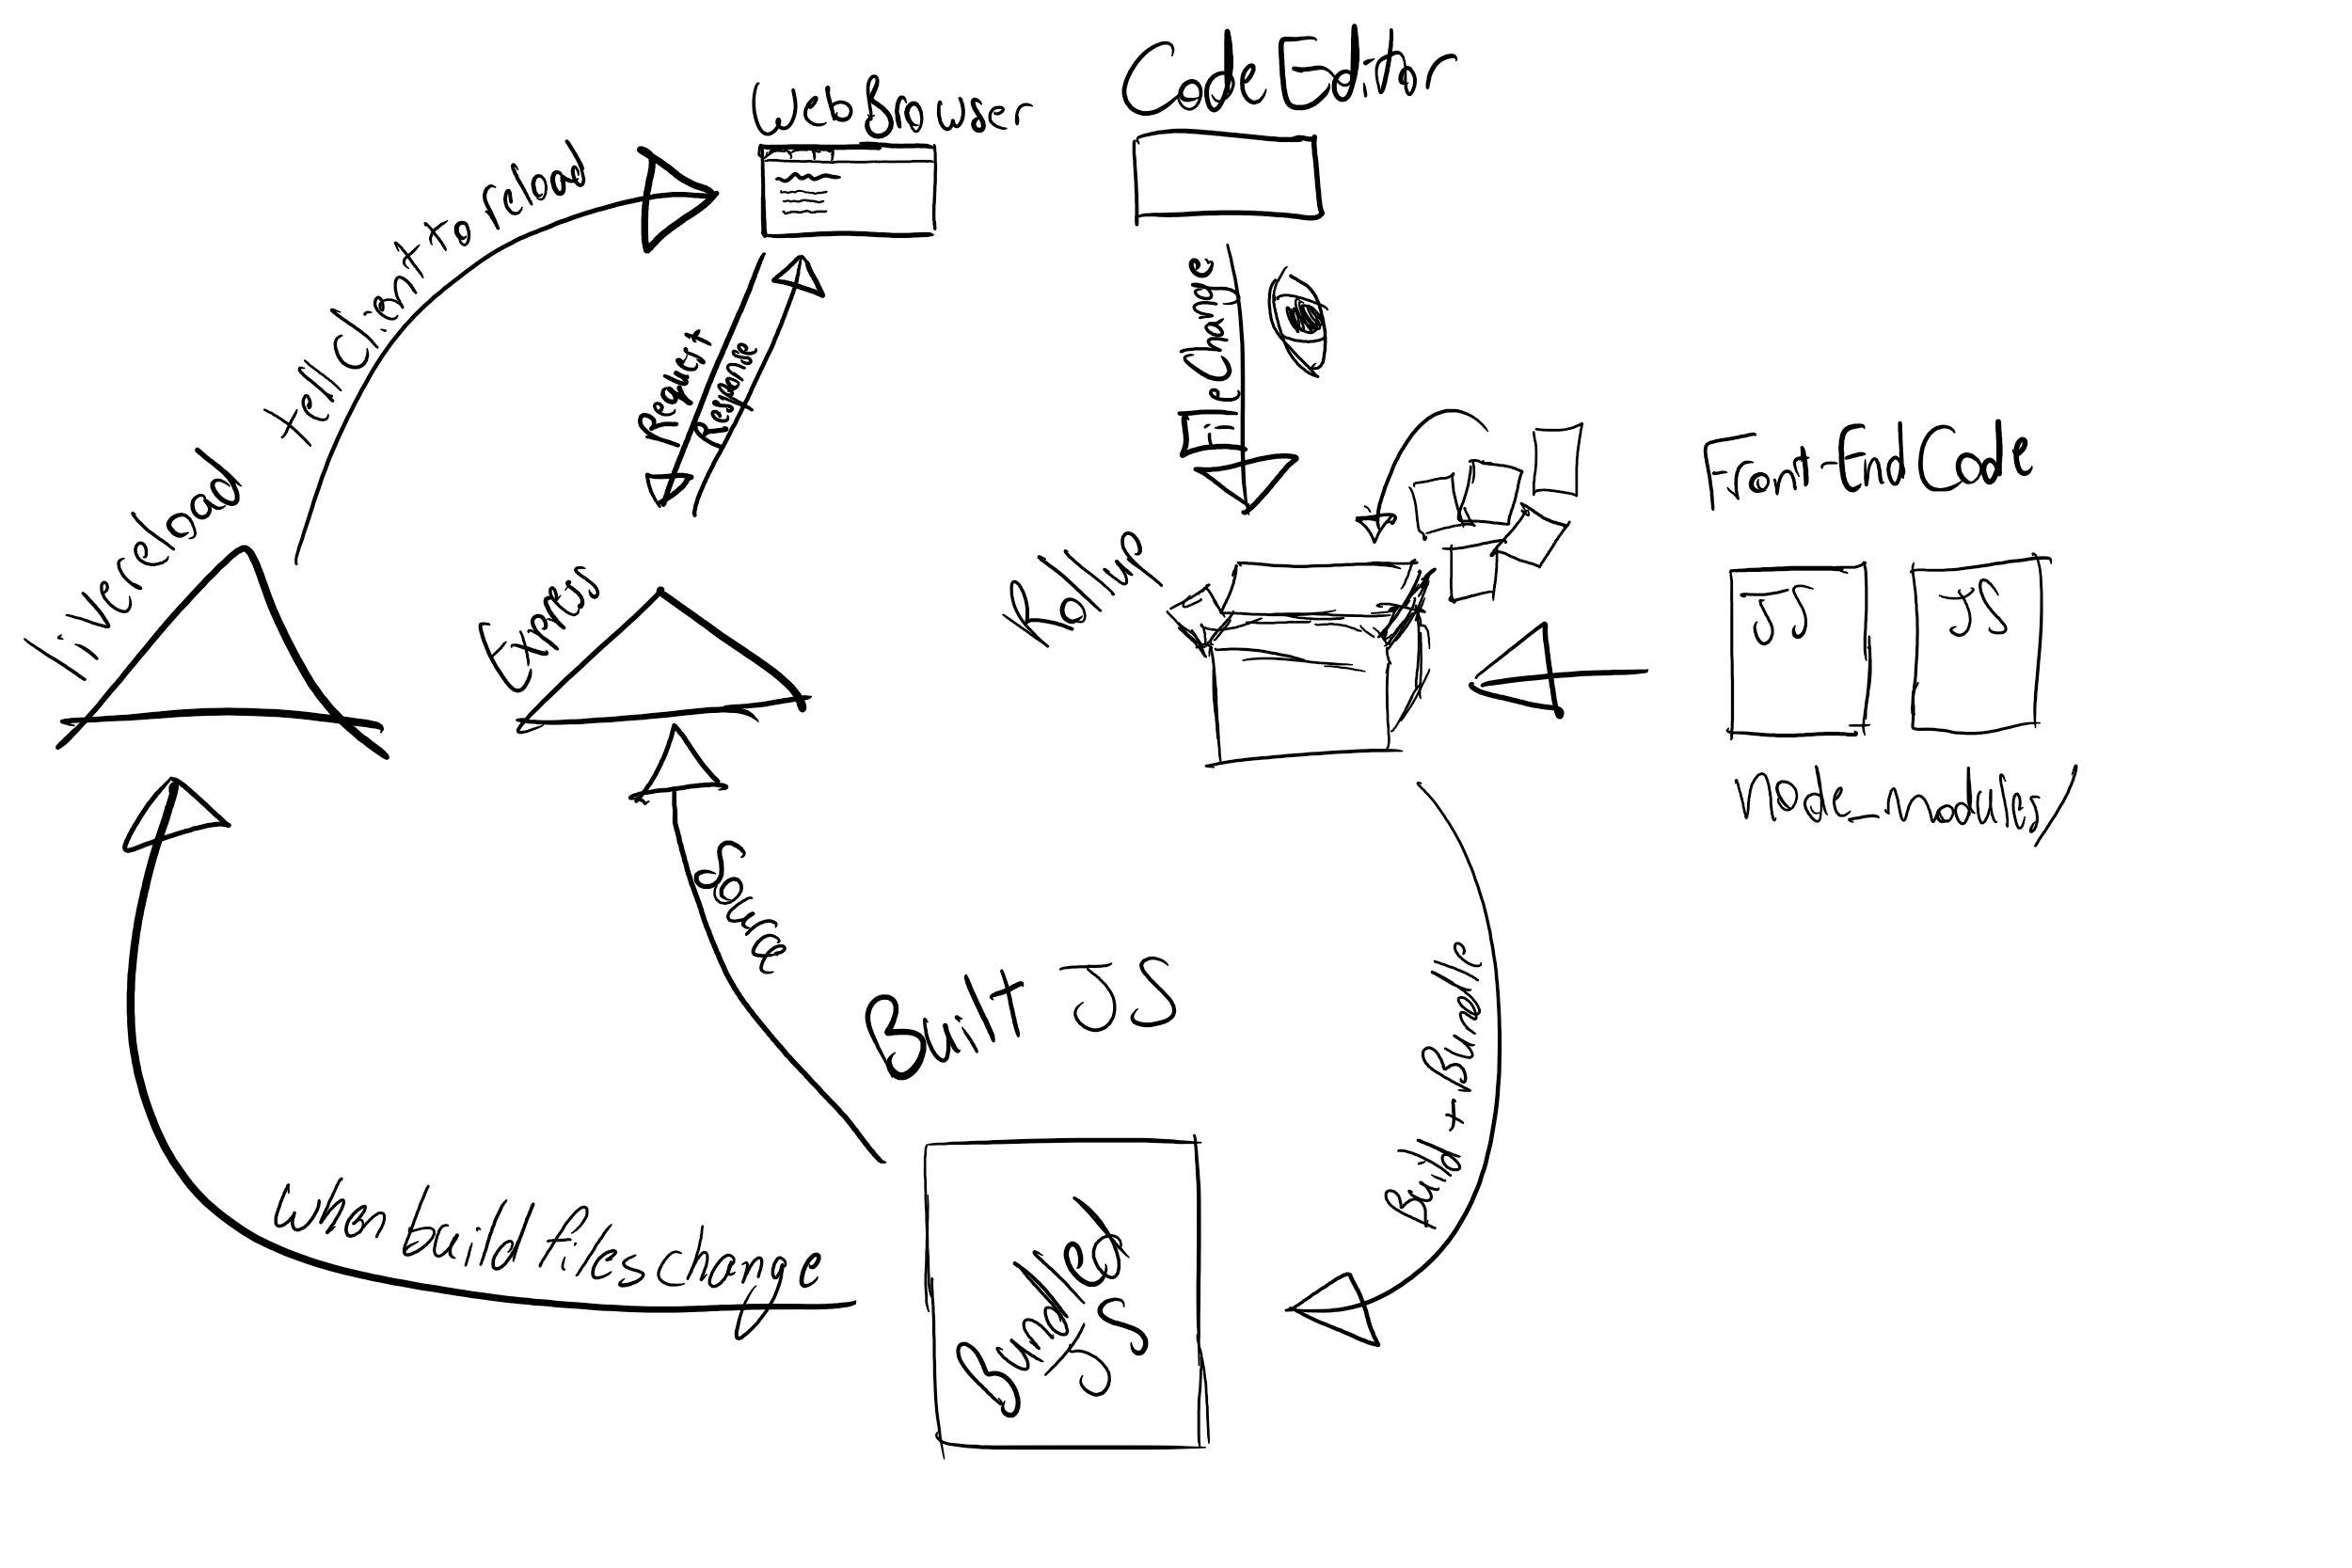 Web Browser
Code Editor
tell client to reload
Request
Response
File Change
Livereload
Express
Rollup
Front-End Code
JS
JS
node_modules/
Source
Built JS
Build + Bundle
when build files change
Bundled
JS